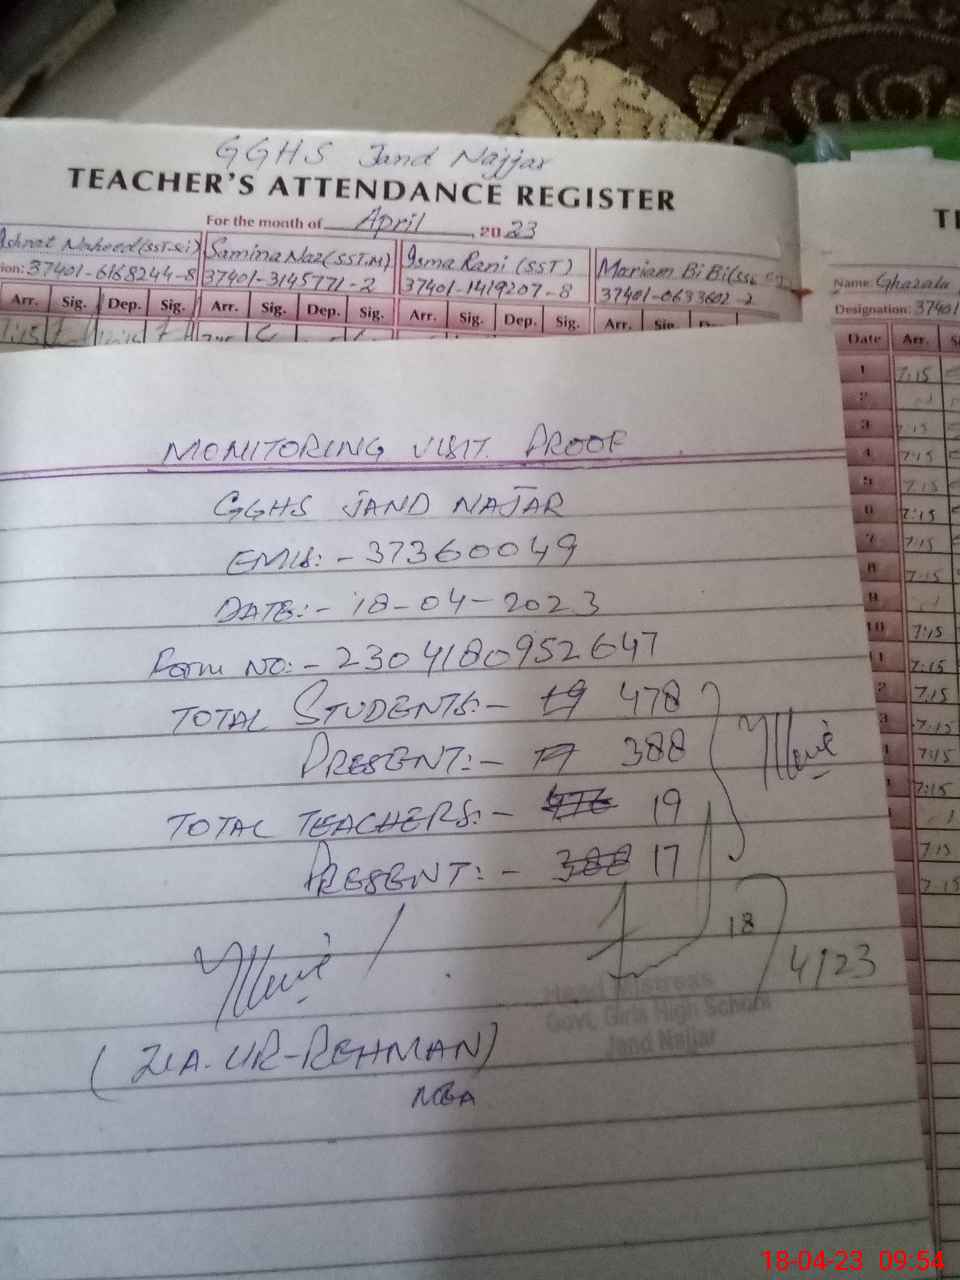 GGHS Jand Najjar
TEACHER'S ATTENDANCE REGISTER
For the month of April, 2023
Naheed (SST.Sci) Samina Naz (SST.M) Isma Rani (SST) Mariam Bi Bi (SSE
ion: 37401-6168244-8 37401-3145771-2 37401-1419207-8 37401-0633602-2
Arr. Sig. Dep. Sig. Arr. Sig. Dep. Sig. Arr. Sig. Dep. Sig. Arr. Sig.
7:15
Name: Ghazala
Designation: 37401
Date Arr.
1 7:15
2
3 7:15
4 7:15
5 7:15
6 7:15
7 7:15
8 7:15
9
10 7:15
1 7:15
2 7.15
3 7:15
1 7:15
7:15
7:15
7.15
MONITORING VISIT PROOF
GGHS JAND NAJJAR
EMIS:- 37360049
DATE:- 18-04-2023
Form NO:- 2304180952647
TOTAL STUDENTS:- 19 478
PRESENT:- 17 388
TOTAL TEACHERS:- 476 19
PRESENT:- 388 17
18/4/23
Head Mistress
Govt. Girls High School
Jand Najjar
(ZIA-UR-REHMAN)
MEA
18-04-23 09:54